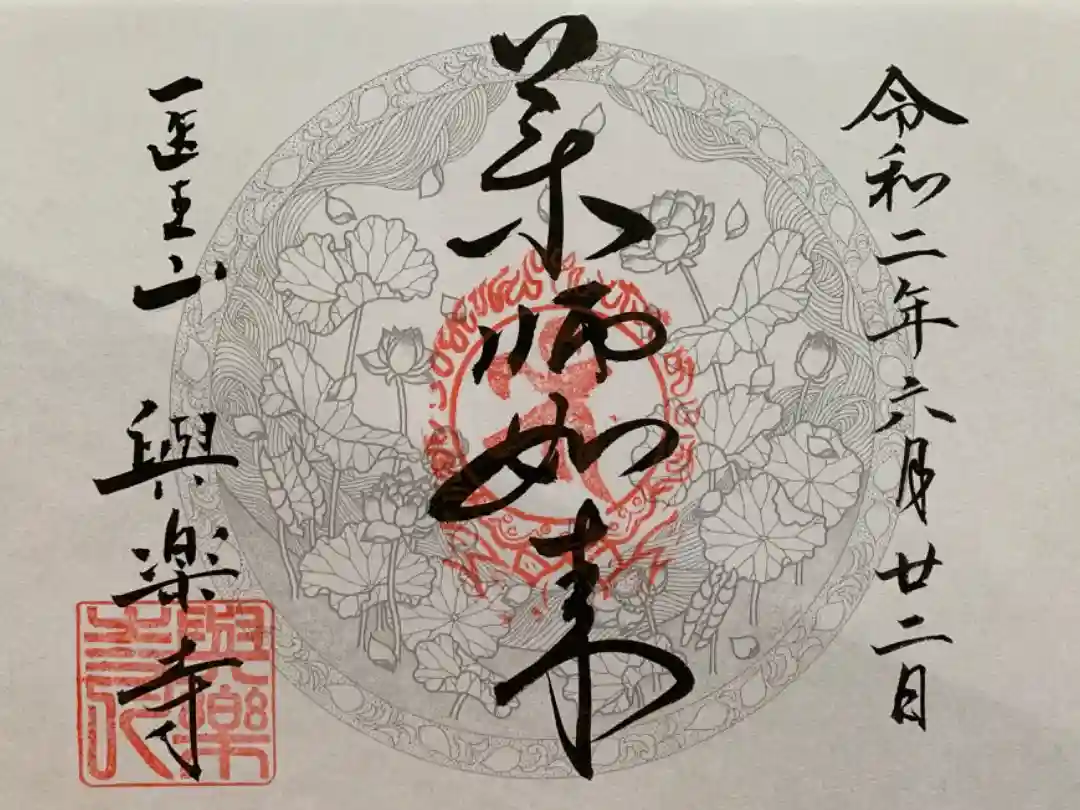 令和二年六月廿二日
薬師如来
医王山 興楽寺